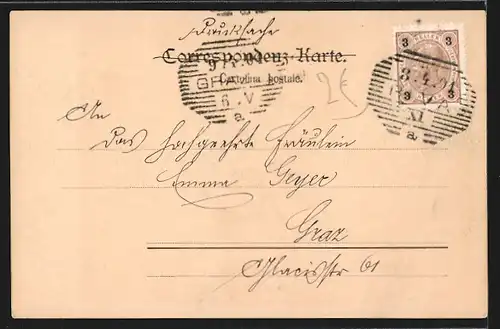 Drucksache
Correspondenz-Karte.
Cartolina postale.
2€
3 3
GRAZ
6.V
a
3.4.01
XI
a
An
das hochgeehrte Fräulein
Emma Geyer
Graz
Glacisstr 61